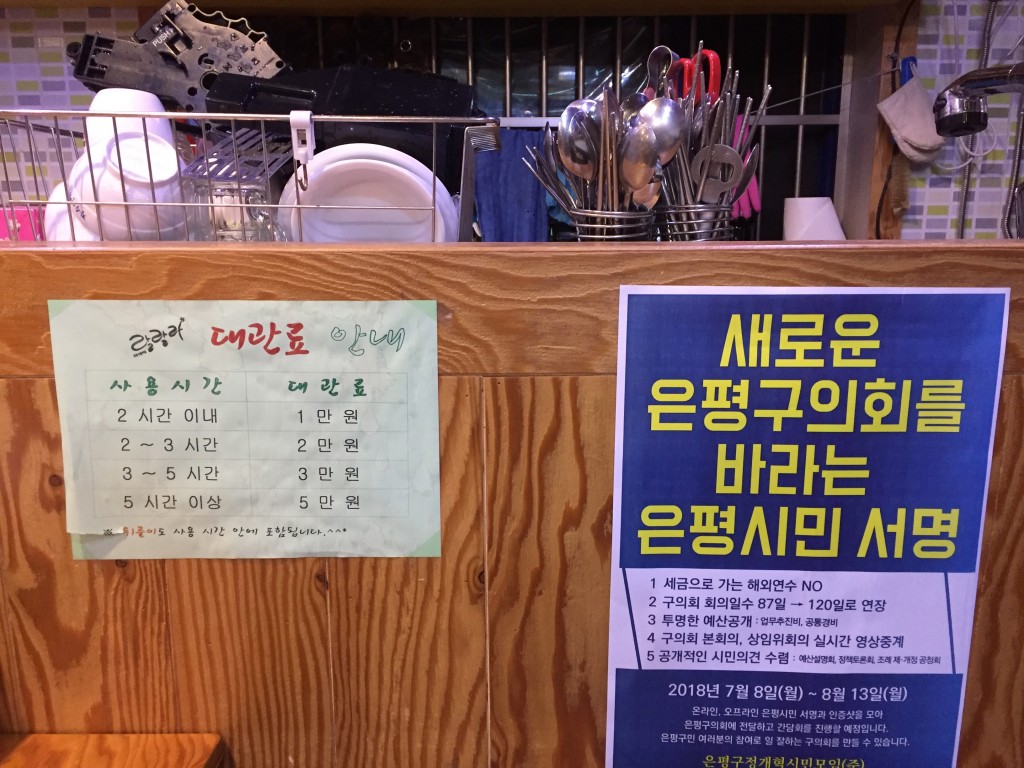 PUSH
랄랄라 대관료 안내
사용시간 대관료
2 시간 이내 1 만 원
2 ~ 3 시간 2 만 원
3 ~ 5 시간 3 만 원
5 시간 이상 5 만 원
※ 뒤풀이도 사용 시간 안에 포함됩니다.^^*
새로운
은평구의회를
바라는
은평시민 서명
1 세금으로 가는 해외연수 NO
2 구의회 회의일수 87일 → 120일로 연장
3 투명한 예산공개 : 업무추진비, 공통경비
4 구의회 본회의, 상임위회의 실시간 영상중계
5 공개적인 시민의견 수렴 : 예산설명회, 정책토론회, 조례 제·개정 공청회
2018년 7월 8일(월) ~ 8월 13일(월)
온라인, 오프라인 은평시민 서명과 인증샷을 모아
은평구의회에 전달하고 간담회를 진행할 예정입니다.
은평구민 여러분의 참여로 일 잘하는 구의회를 만들 수 있습니다.
은평구정개혁시민모임(준)